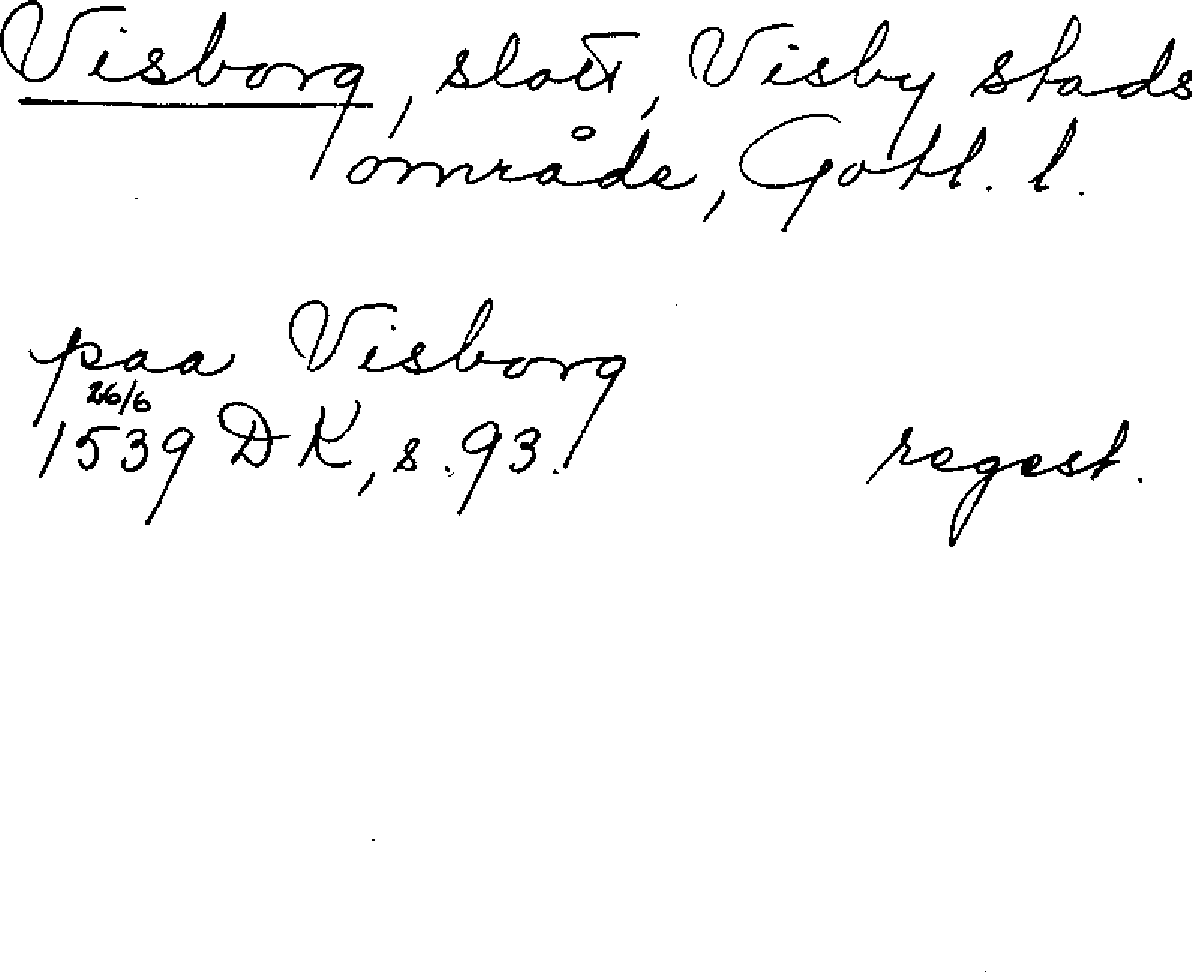 Visborg, slott, Visby stads
område, Gotl. l.
paa Visborg
26/6
1539 DK, s. 93.
regest.